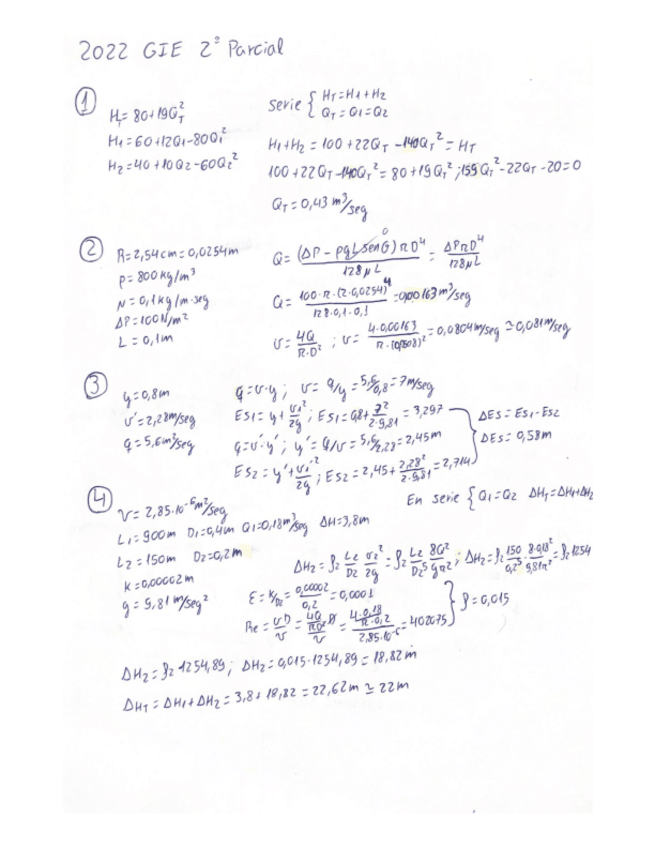 2022 GIE 2º Parcial
①
H_T = 80+19Q_T²
H1 = 60+12Q1-80Q1²
H2 = 40+10Q2-60Q2²
serie { H_T = H1+H2
Q_T = Q1 = Q2
H1+H2 = 100+22Q_T-140Q_T² = H_T
100+22Q_T-140Q_T² = 80+19Q_T² ; 159Q_T²-22Q_T-20=0
Q_T = 0,43 m³/seg
②
R = 2,54cm = 0,0254m
ρ = 800kg/m³
μ = 0,1kg/m·seg
ΔP = 100N/m²
L = 0,1m
Q = (ΔP - ρgL senθ) π D⁴ / 128μL = ΔPπD⁴ / 128μL
0
Q = 100·π·(2·0,0254)⁴ / 128·0,1·0,1 = 0,00163m³/seg
v = 4Q / π·D² ; v = 4·0,00163 / π·(0,0508)² = 0,0804m/seg ≃ 0,081m/seg
③
y = 0,8m
v' = 2,28m/seg
q = 5,6m³/seg
q = v·y ; v = q/y = 5,6/0,8 = 7m/seg
Es1 = y + v1²/2g ; Es1 = 0,8 + 7²/2·9,81 = 3,297
q = v'·y' ; y' = q/v = 5,6/2,28 = 2,45m
Es2 = y' + v1²/2g ; Es2 = 2,45 + 2,28²/2·9,81 = 2,714
ΔEs = Es1-Es2
ΔEs = 0,58m
④
ν = 2,85·10⁻⁶m²/seg
L1 = 900m D1 = 0,4m Q1 = 0,18m³/seg ΔH = 3,8m
L2 = 150m D2 = 0,2m
K = 0,00002m
g = 9,81m/seg²
En serie { Q1 = Q2 ΔH_T = ΔH1+ΔH2
ΔH2 = f2 L2/D2 v2²/2g = f2 L2/D2⁵ 8Q²/gπ² ; ΔH2 = f2 150/0,2⁵ · 8·0,18²/9,81π² = f2 1254
ε = K/D2 = 0,00002/0,2 = 0,0001
Re = vD/ν = 4Q/πD² D/ν = 4·0,18/π·0,2 / 2,85·10⁻⁶ = 402075
} f = 0,015
ΔH2 = f2 1254,89 ; ΔH2 = 0,015·1254,89 = 18,82m
ΔH_T = ΔH1+ΔH2 = 3,8+18,82 = 22,62m ≃ 22m